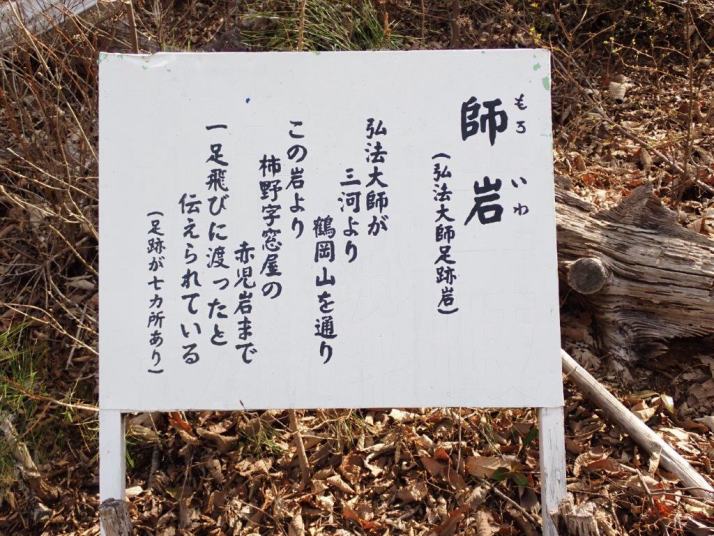 師岩
もろいわ
(弘法大師足跡岩)
弘法大師が
三河より
鶴岡山を通り
この岩より
柿野字窓屋の
赤児岩まで
一足飛びに渡ったと
伝えられている
(足跡が七カ所あり)